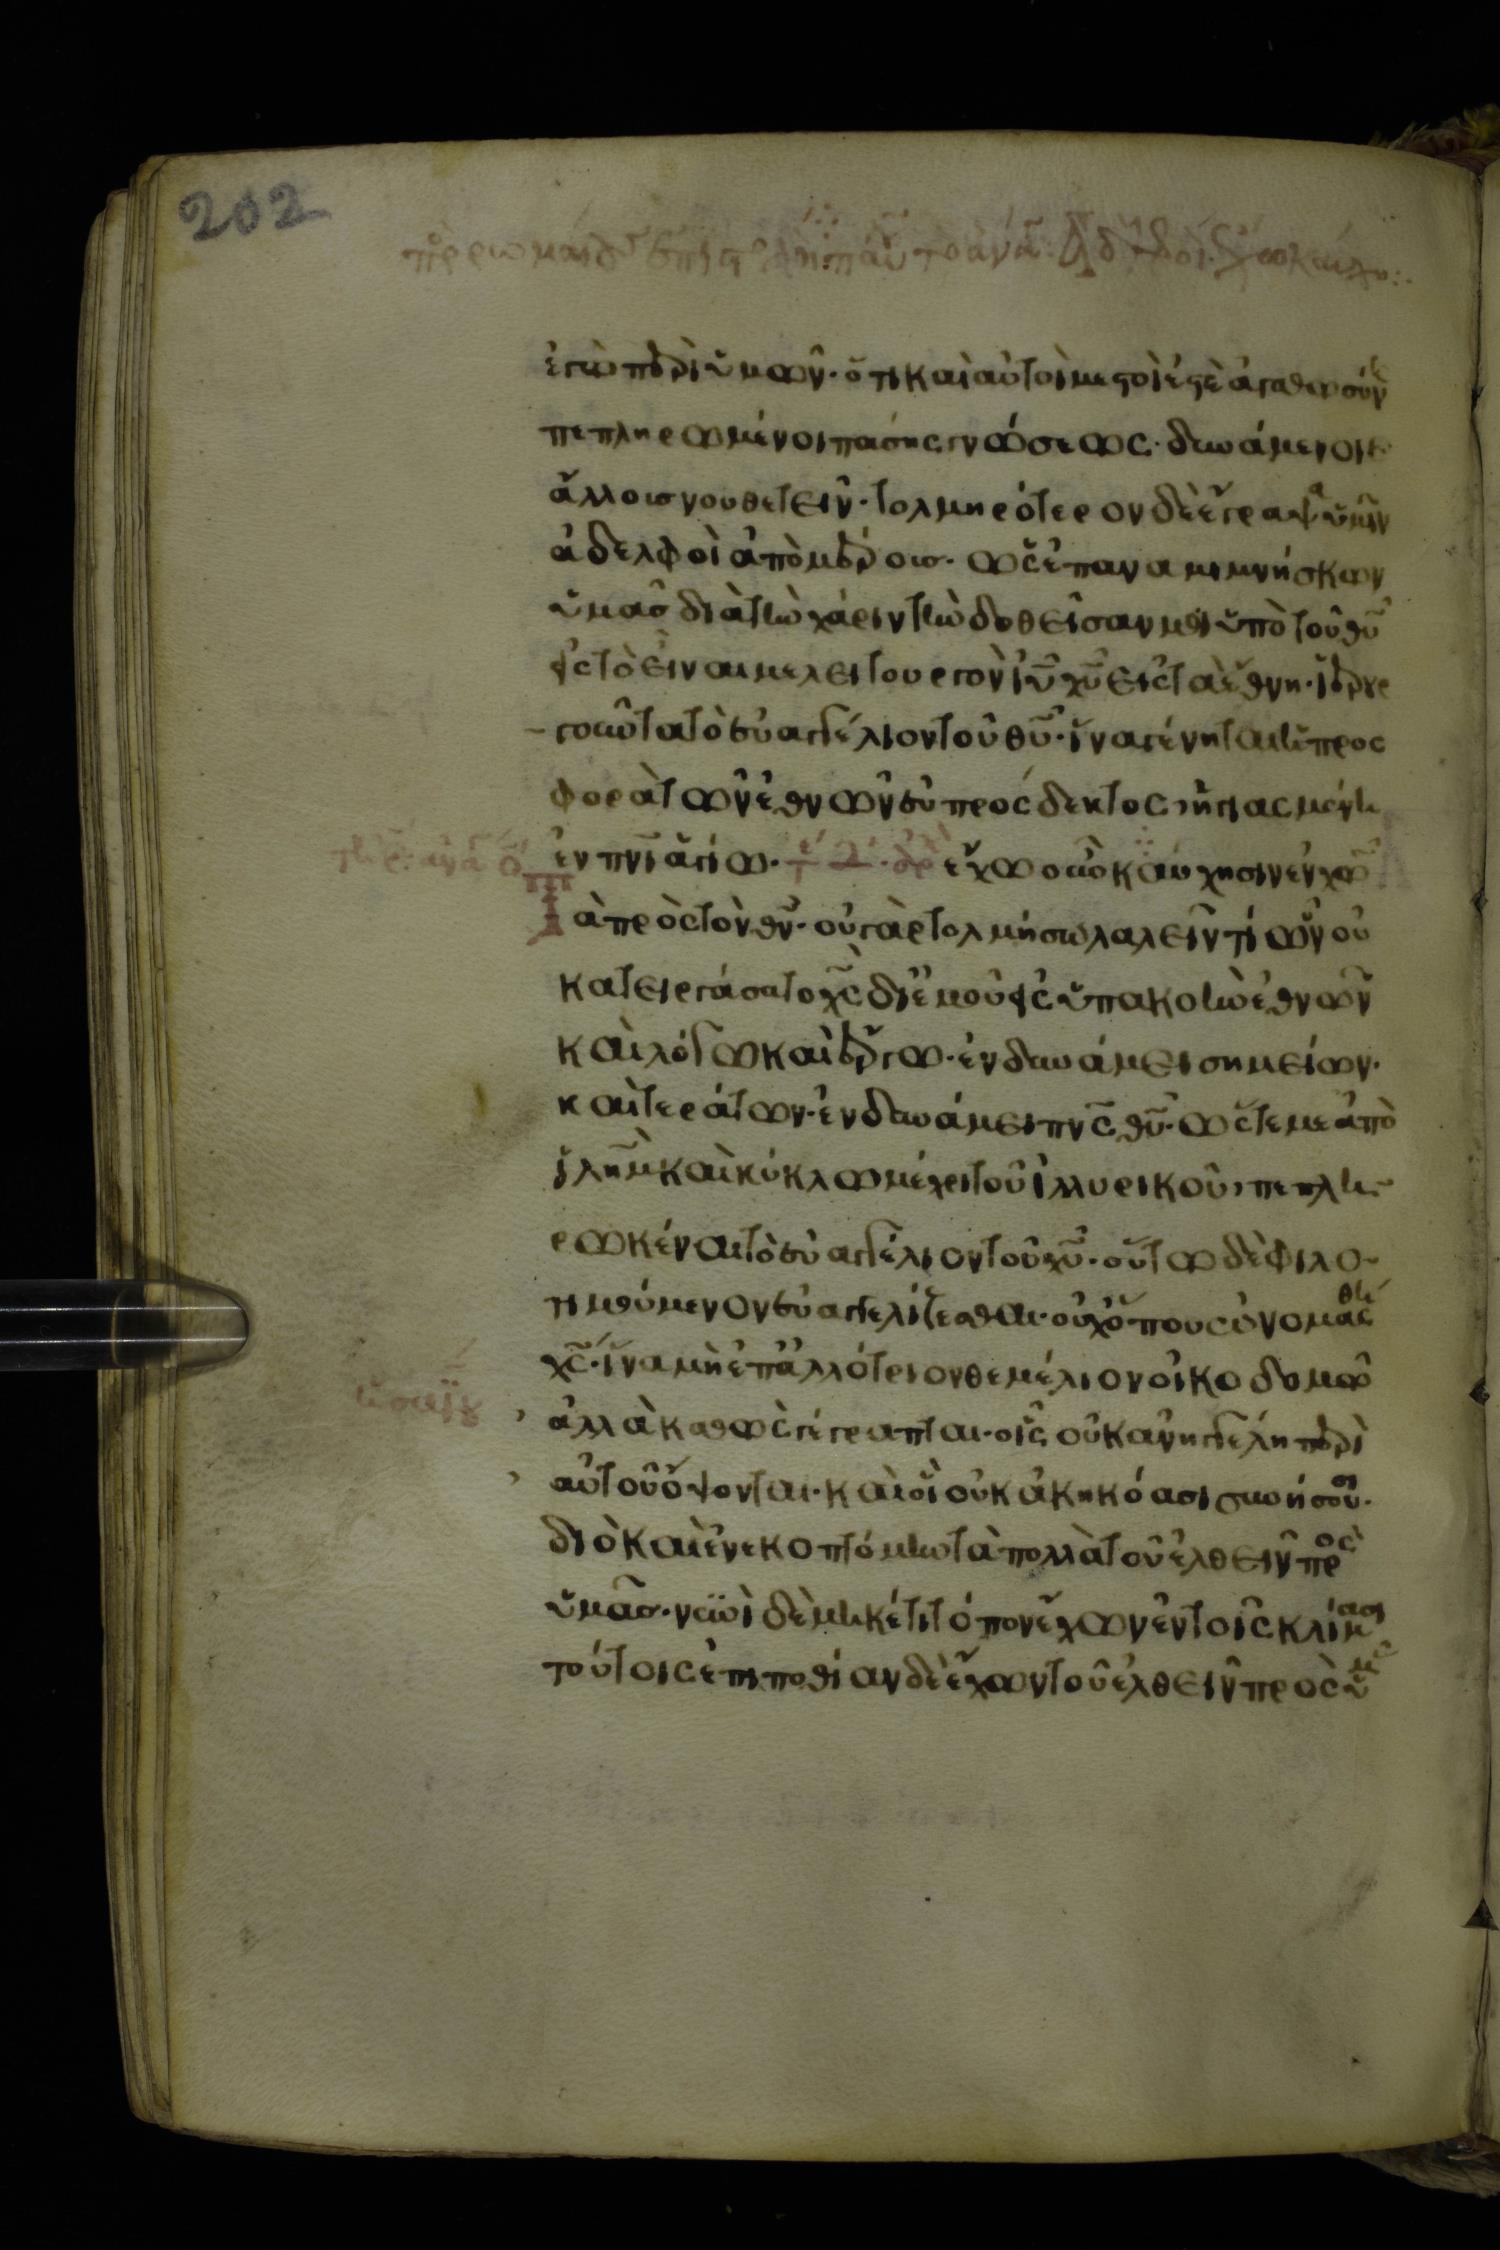 202
ἐγὼ περὶ ὑμῶν· ὅτι καὶ αὐτοὶ μεστοί ἐστε ἀγαθωσύν
πεπληρωμένοι πάσης γνώσεως· δυνάμενοι κ
ἄλλους νουθετεῖν· τολμηρότερον δὲ ἔγραψα ὑμῖν
ἀδελφοὶ ἀπὸ μέρους· ὡς ἐπαναμιμνήσκων
ὑμᾶς διὰ τὴν χάριν τὴν δοθεῖσαν μοι ὑπὸ τοῦ θυ
εἰς τὸ εἶναι με λειτουργὸν ιυ χυ εἰς τὰ ἔθνη· ἱερουρ
γοῦντα τὸ εὐαγγέλιον τοῦ θυ· ἵνα γένηται ἡ προσ
φορὰ τῶν ἐθνῶν εὐπρόσδεκτος, ἡγιασμένη
ἐν πνι ἁγίω· ἔχω οὖν καύχησιν ἐν χω
Τὰ πρὸς τὸν θν· οὐ γὰρ τολμήσω λαλεῖν τί ὧν οὐ
κατειργάσατο χς δι' ἐμοῦ εἰς ὑπακοὴν ἐθνῶν
καὶ λόγω καὶ ἔργω· ἐν δυνάμει σημείων·
καὶ τεράτων· ἐν δυνάμει πνς θυ· ὥστε με ἀπὸ
ιλημ καὶ κύκλω μέχρι τοῦ ἰλλυρικοῦ, πεπλη
ρωκέναι τὸ εὐαγγέλιον τοῦ χυ· οὕτω δὲ φιλο
τιμούμενον εὐαγγελίζεσθαι· οὐχ ὅπου ὠνομάσθη
χς· ἵνα μὴ ἐπ' ἀλλότριον θεμέλιον οἰκοδομῶ
ἀλλὰ καθὼς γέγραπται· οἷς οὐκ ἀνηγγέλη περὶ
αὐτοῦ ὄψονται· καὶ οἳ οὐκ ἀκηκόασι συνήσουσι·
διὸ καὶ ἐνεκοπτόμην τὰ πολλὰ τοῦ ἐλθεῖν πρὸς
ὑμᾶς· νυνὶ δὲ μηκέτι τόπον ἔχων ἐν τοῖς κλίμασι
τούτοις ἐπιποθίαν δὲ ἔχων τοῦ ἐλθεῖν πρὸς ὑμᾶς